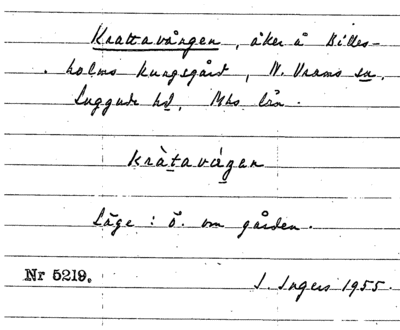 Krattavången, åker å Billes-
holms kungsgård, N. Vrams sn.
Luggude hd, Mhs län.
kràtavåŋen
Läge: ö. om gården.
Nr 5219.
I. Ingers 1955.